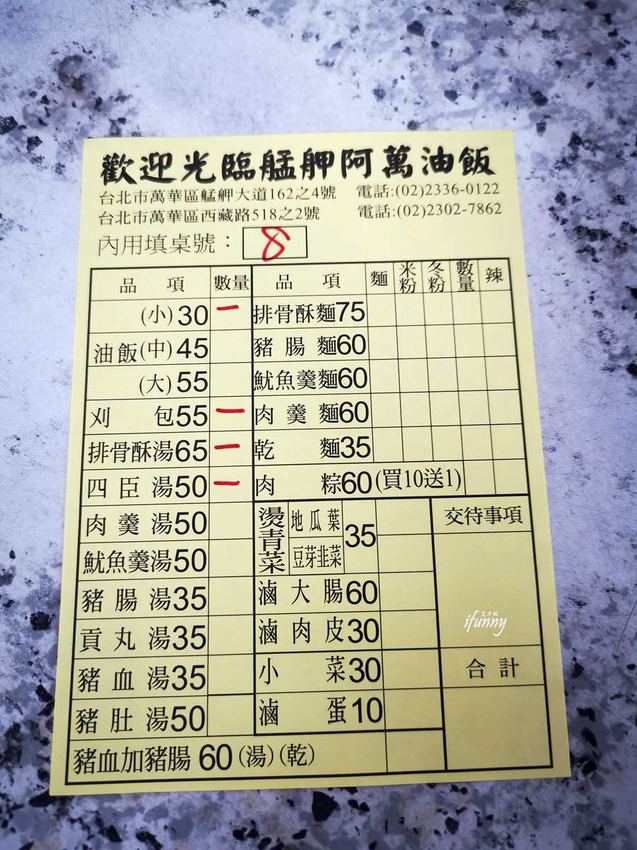 歡迎光臨艋舺阿萬油飯
台北市萬華區艋舺大道162之4號 電話:(02)2336-0122
台北市萬華區西藏路518之2號 電話:(02)2302-7862
內用填桌號：8
品項 數量 品項 麵 米粉 冬粉 數量 辣
(小)30 一 排骨酥麵75
油飯(中)45 豬腸麵60
(大)55 魷魚羹麵60
刈包55 一 肉羹麵60
排骨酥湯65 一 乾麵35
四臣湯50 一 肉粽60(買10送1)
肉羹湯50 燙青菜 地瓜葉 35 交待事項
魷魚羹湯50 豆芽韭菜
豬腸湯35 滷大腸60
貢丸湯35 滷肉皮30
ifunny
豬血湯35 小菜30 合計
豬肚湯50 滷蛋10
豬血加豬腸 60 (湯)(乾)